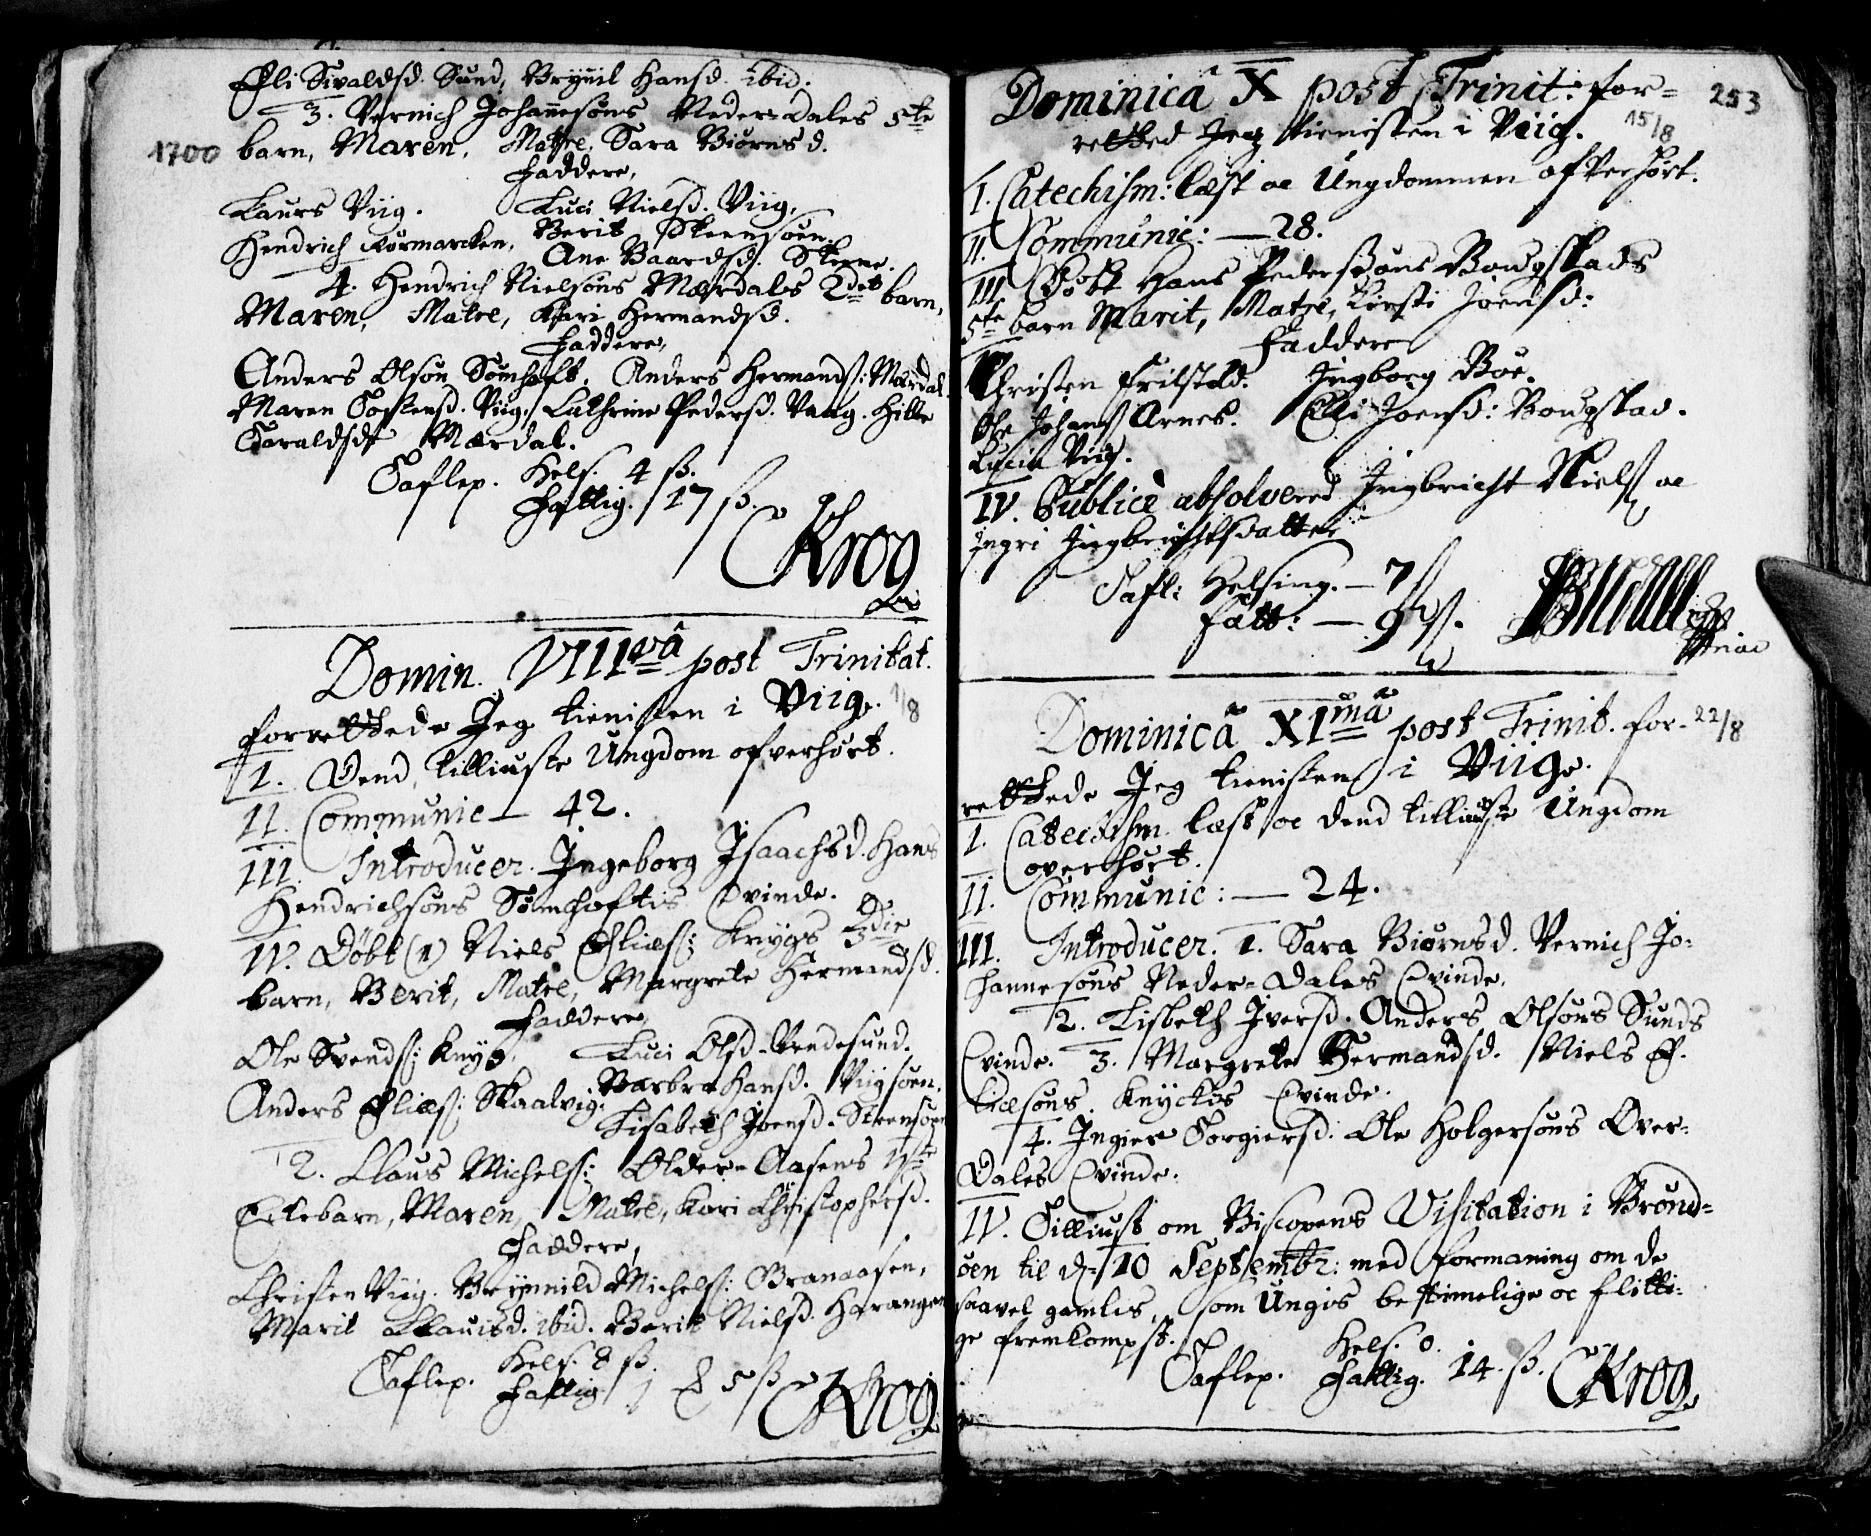 Eli Sivaldsd. Sund, Brynil Hansd. ibid.
3. Vernich Johannesøns Neder-Dales 5te
1700
barn, Maren, Matre, Sara Biørnsd.
Faddere,
Laurs Viig. Luci Nielsd. Viig,
Hendrich Rørmarcken, Berit Steensøen,
Ane Baardsd. Steene.
4. Hendrich Nielsøns Mærdales 2det barn,
Maren, Matre, Kari Hermandsd.
Faddere,
Anders Olsøn Sømhoft, Anders Hermands: Mærdal
Maren Torstensd. Viig, Cathrine Pedersd. Vaag. Hille
Haraldsd. Mærdal.
Taflep. Hels. 4 ß.
Fattig. 17 ß.
CKrog
Domin. VIIIvâ post Trinitat.
forrettede Jeg tienisten i Viig. 1/8
I. Dend tilliuste Ungdom ofverhørt.
II. Communic — 42.
III. Introducer. Ingeborg Isaachsd. Hans
Hendrichsøns Sømhoftis Qvinde.
IV. Døbt (1) Niels Eliæs: Knygs 3die
barn, Berit, Matre, Margrete Hermandsd.
Faddere,
Ole Svends: Knyg. Luci Olsd. Vendesund.
Anders Eliæs: Skaalvig. Barbra Hansd. Viigsøen.
Lisabeth Joensd. Steensøen
2. Claus Michels: Older-Aasens 1ste
Ectebarn, Maren, Matre, Kari Christophersd.
Faddere,
Christen Viig. Brynnild Michels: Branaasen,
Marit Clausd. ibid. Berit Nielsd. Harangen
Taflep. Hels. 8 ß.
Fattig 5 ß
CKrog
Dominicâ X post Trinit: for-
253
retted Jeg tienisten i Viig. 15/8
I. Catechism: læst oc Ungdommen ofverhørt.
II. Communic: — 28.
III Døbt Hans Pedersøns Bougstads
5te barn Marit, Matre, Kirsti Joensd:
Faddere
Christen Trilstad. Ingborg Böe.
Ole Johans Arnes. Elli Joensd: Bougstad.
Lucia Viig.
IV. Publicè absolvered Ingbricht Niels oc
Ingri Ingbrichtsdatter
Tafl: Helsing. — 7 ß
Fatt: — 9 ß.
Dominicâ XImâ post Trinit. for- 22/8
rettede Jeg tienisten i Viig.
I. Catechism. læst oc dend tilliuste Ungdom
overhørt.
II. Communic: — 24.
III. Introducer. 1. Sara Biørnsd. Vernich Jo-
hannesøns Neder-Dales Qvinde.
2. Lisbeth Iversd. Anders Olsøns Sunds
Qvinde. 3. Margrete Hermandsd. Niels E-
liæsøns Knyckes Qvinde.
4. Ingier Torgiersd. Ole Holgersøns Over-
Dales Qvinde.
IV. Tilliust om Biscopens Visitation i Brønd-
øen til d. 10 Septembr: med formaning om de
saavel gamles, som Ungis bestimelige oc flitti-
ge fremkompst.
Taflep. Hels. 0.
Fattig. 14. ß.
CKrog